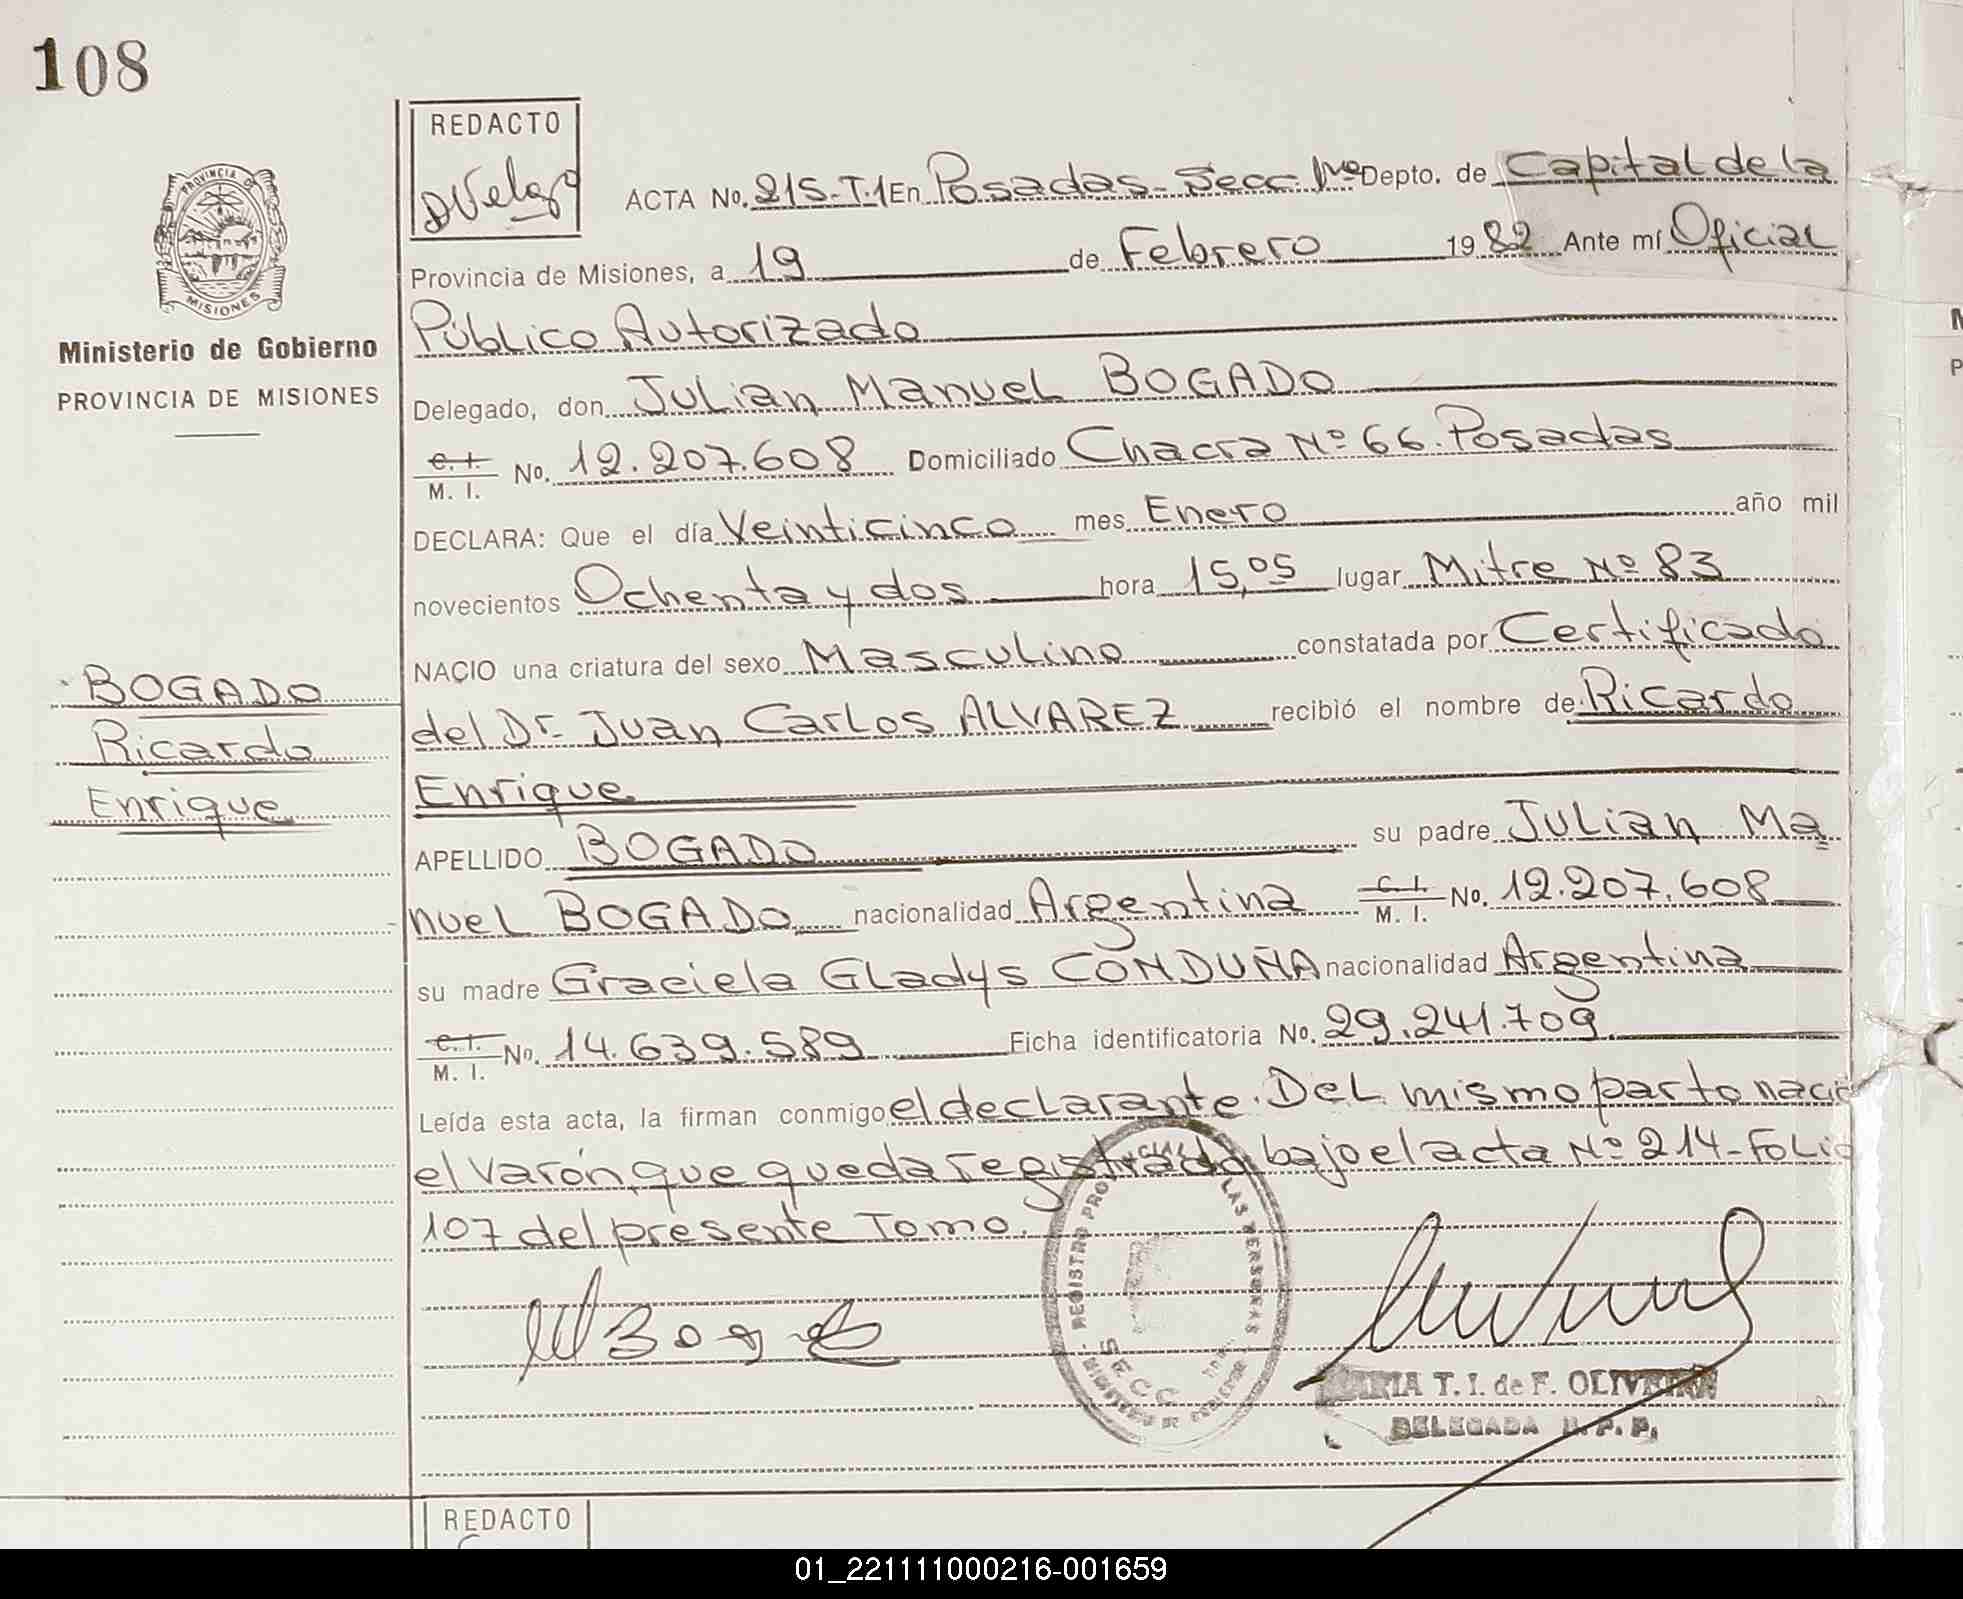 108
REDACTO
PROVINCIA DE
MISIONES
Ministerio de Gobierno
PROVINCIA DE MISIONES
ACTA No. 215-T.1 En Posadas-Secc. 1ra Depto. de Capital de la
Provincia de Misiones, a 19 de Febrero 1982 Ante mí Oficial
Público Autorizado
Delegado, don Julian Manuel BOGADO
C. I.
M. I. No. 12.207.608 Domiciliado Chacra Nº 66. Posadas
DECLARA: Que el día Veinticinco mes Enero año mil
novecientos Ochenta y dos hora 15,05 lugar Mitre Nº 83
NACIO una criatura del sexo Masculino constatada por Certificado
del Dr. Juan Carlos ALVAREZ recibió el nombre de Ricardo
Enrique
APELLIDO BOGADO su padre Julian Ma
nuel BOGADO nacionalidad Argentina C. I.
M. I. No. 12.207.608
su madre Graciela Gladys CONDUÑA nacionalidad Argentina
C. I.
M. I. No. 14.639.589 Ficha identificatoria No. 29.241.709
Leída esta acta, la firman conmigo el declarante. Del mismo parto nació
el varón, que queda registrado bajo el acta Nº 214-Folio
107 del presente Tomo.
BOGADO
Ricardo
Enrique
REGISTRO PROVINCIAL DE LAS PERSONAS
SECC.
MINISTERIO DE GOBIERNO
MARIA T. I. de F. OLIVEIRA
DELEGADA R. P. P.
REDACTO
01_221111000216-001659